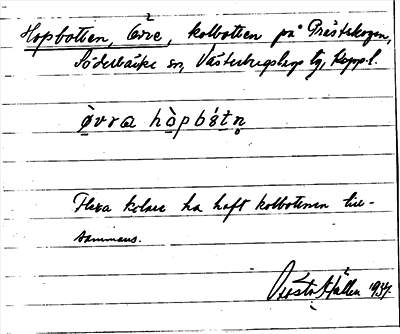 Hopbotten, Övre, kolbotten på Prästskogen,
Söderbärke sn, Västerbergslags tg, Kopp. l.
òvra hòpbót̠n̥
Flera kolare ha haft kolbottnen till-
sammans.
Gösta Atällen 1937.